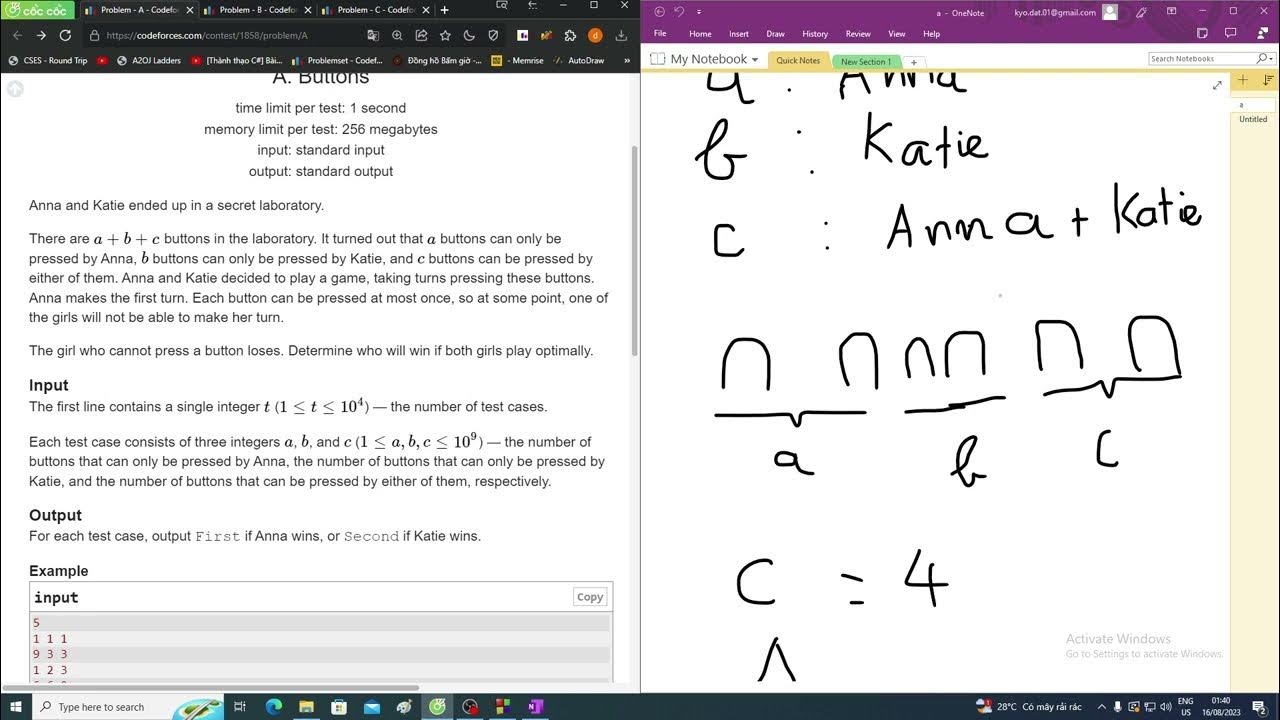 cốc cốc
Problem - A - Codef
Problem - B - Codef
Problem - C - Codef
https://codeforces.com/contest/1858/problem/A
CSES - Round Trip
O2OJ Ladders
[Thành thạo C#] Bài...
Problemset - Codef...
Đồng hồ bấm giờ -...
- Memrise
AutoDraw
»
A. Buttons
time limit per test: 1 second
memory limit per test: 256 megabytes
input: standard input
output: standard output
Anna and Katie ended up in a secret laboratory.
There are a + b + c buttons in the laboratory. It turned out that a buttons can only be
pressed by Anna, b buttons can only be pressed by Katie, and c buttons can be pressed by
either of them. Anna and Katie decided to play a game, taking turns pressing these buttons.
Anna makes the first turn. Each button can be pressed at most once, so at some point, one of
the girls will not be able to make her turn.
The girl who cannot press a button loses. Determine who will win if both girls play optimally.
Input
The first line contains a single integer t (1 ≤ t ≤ 10⁴) — the number of test cases.
Each test case consists of three integers a, b, and c (1 ≤ a, b, c ≤ 10⁹) — the number of
buttons that can only be pressed by Anna, the number of buttons that can only be pressed by
Katie, and the number of buttons that can be pressed by either of them, respectively.
Output
For each test case, output First if Anna wins, or Second if Katie wins.
Example
input
Copy
5
1 1 1
9 3 3
1 2 3
a - OneNote
kyo.dat.01@gmail.com
File
Home
Insert
Draw
History
Review
View
Help
My Notebook
Quick Notes
New Section 1
+
Search Notebooks
a
Untitled
a : Anna
b : Katie
c : Anna + Katie
a b c
c = 4
Activate Windows
Go to Settings to activate Windows.
Type here to search
28°C Có mây rải rác
ENG
01:40
16/08/2023